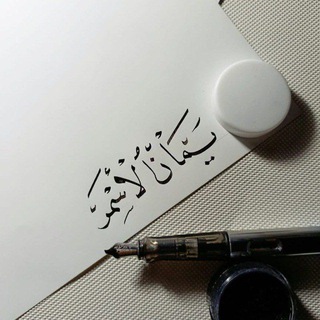 يَمَان الأَسْمَر